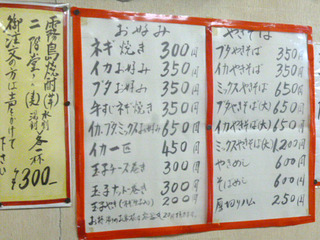 霧島焼酎(芋)水割
二階堂(麦)湯割 各一杯
御注文の方は声かけて
下さい
300
お好み
ネギ焼き 300円
イカお好み 350円
ブタお好み 350円
牛すじネギ焼き 350円
イカ,ブタミックスお好み 650円
イカ一匹 450円
玉子チーズ巻き 300円
玉子ナットー巻き 300円
玉子やき 200円
やきそば
ブタやきそば 350円
イカやきそば 350円
ミックスやきそば 650円
ブタやきそば(大) 650円
イカやきそば(大) 650円
ミックスやきそば(大) 1,200円
やきめし 600円
そばめし 600円
厚切りハム 250円